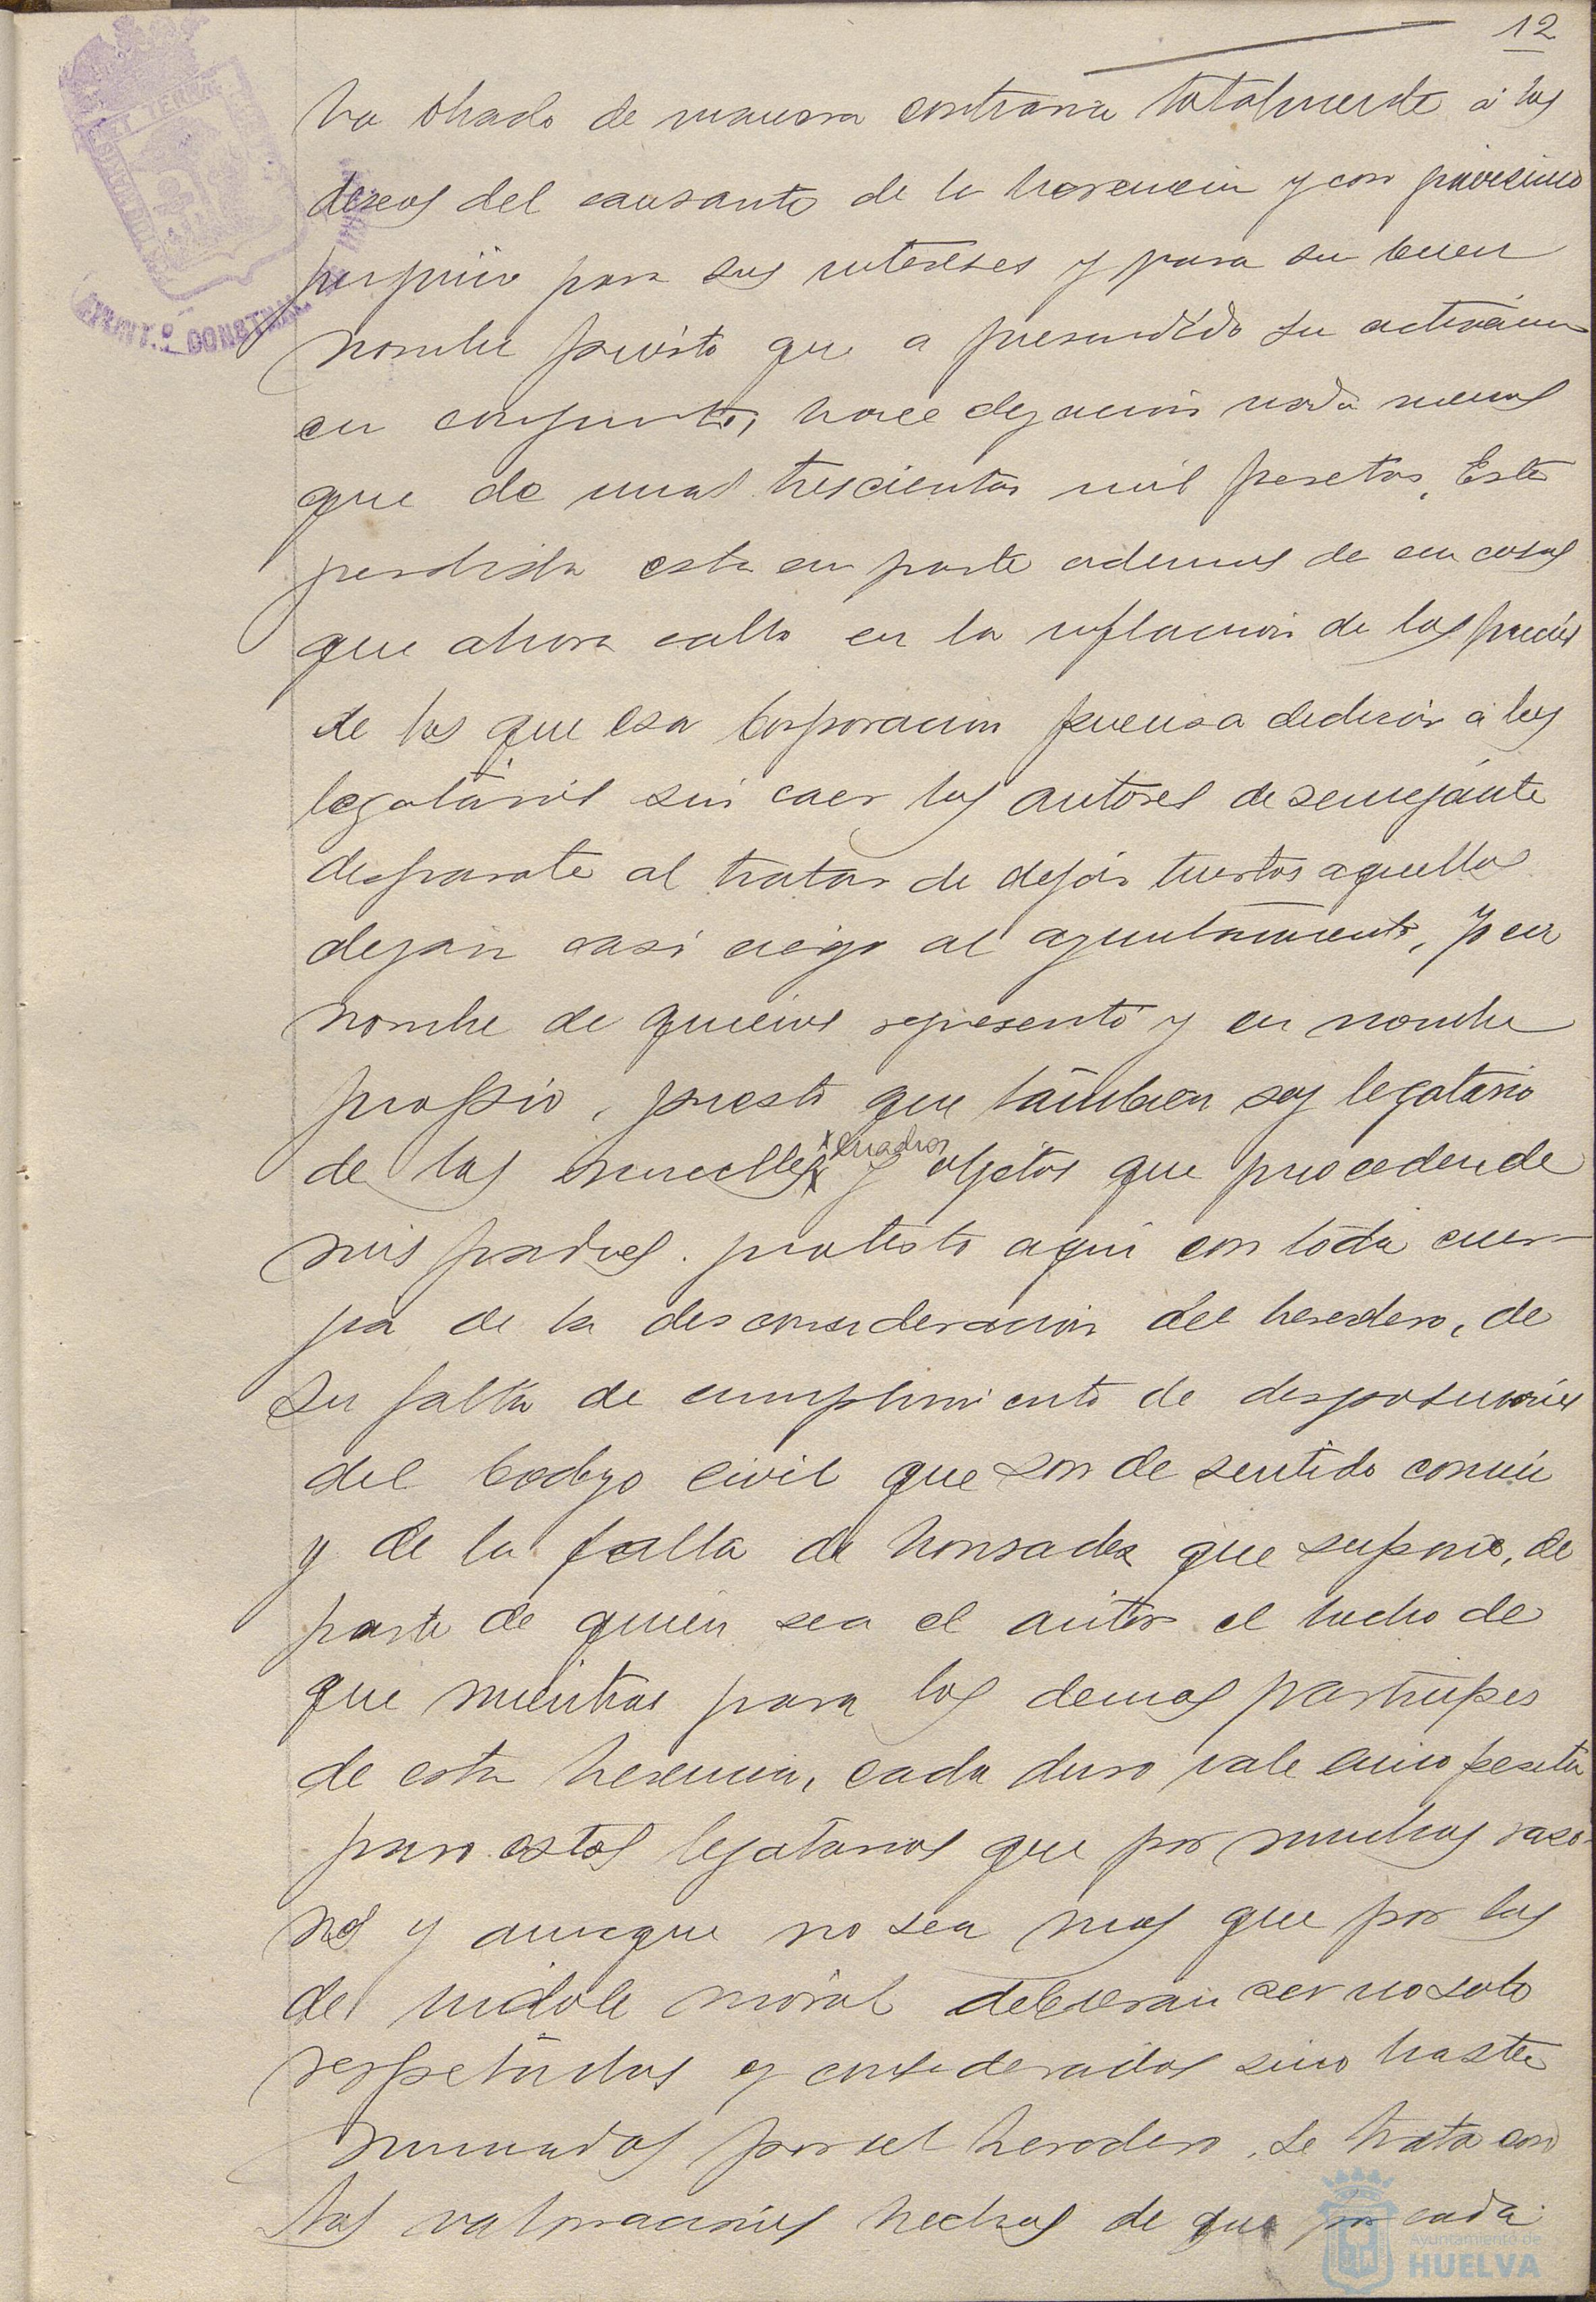 12
ha obrado de manera contraria totalmente á los
deseos del causante de la herencia y con
perjuicio para sus intereses y para su buen
nombre puesto que a su actuación
en conjunto, hace dejacion nada menos
que de unas trescientas mil pesetas. Esta
perdida esta en parte ademas de en cosas
que ahora callo en la inflacion de los precios
de los que esa Corporacion piensa dedicar á los
legatarios sin caer los autores de semejante
disparate al tratar de dejar tuertos aquellos
dejan casi ciego al ayuntamiento. Yo en
nombre de quienes represento y en nombre
propio, puesto que tambien soy legatario
de los muebles cuadros y objetos que proceden de
mis padres. protesto aqui con toda ener-
gia de la desconsideracion del heredero, de
su falta de cumplimiento de disposiciones
del Codigo civil que son de sentido comun
y de la falta de honradez que supone, de
parte de quien sea el autor el hecho de
que mientras para los demas participes
de esta herencia, cada duro vale cinco pesetas
para estos legatarios que por muchas razo-
nes y aunque no sea mas que por las
de indole moral debieran ser no solo
respetados y considerados sino hasta
mimados por el heredero, se trata con
las valoraciones hechas de que por cada
AYUNT.º CONSTNAL
Ayuntamiento de
HUELVA